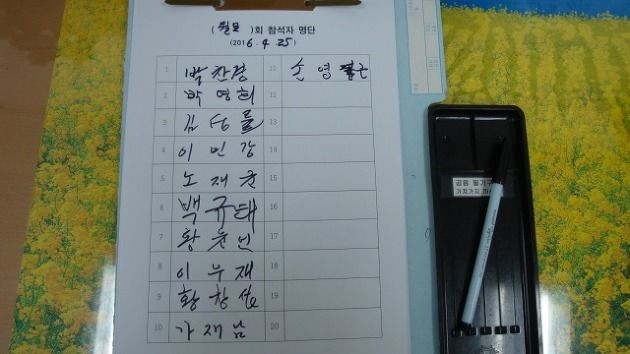 (월모)회 참석자 명단
(2016. 4. 25)
1 박찬경 11 손영
2 박영희 12
3 김성률 13
4 이민강 14
5 노재윤 15
6 백규태 16
7 황운언 17
8 이우재 18
9 황창섭 19
10 가재남 20
공용 필기구
가져가지 마